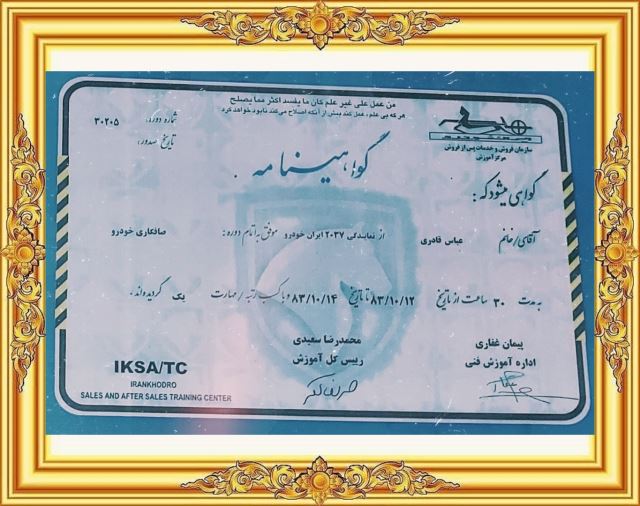 من عمل علی غیر علم کان ما یفسد اکثر مما یصلح
هر که بی علم، عمل کند بیش از آنکه اصلاح می‌کند نابود خواهد کرد
سازمان فروش و خدمات پس از فروش
مرکز آموزش
شماره دوره: ۳۰۲۰۵
تاریخ صدور:
گواهینامه
گواهی میشود که:
آقای/خانم عباس قادری از نمایندگی ۲۰۳۷ ایران خودرو موفق به اتمام دوره: صافکاری خودرو
به مدت ۳۰ ساعت از تاریخ ۸۳/۱۰/۱۲ تا تاریخ ۸۳/۱۰/۱۴ و با کسب رتبه/مهارت یک گردیده‌اند.
پیمان غفاری
اداره آموزش فنی
محمدرضا سعیدی
رییس کل آموزش
IKSA/TC
IRANKHODRO
SALES AND AFTER SALES TRAINING CENTER